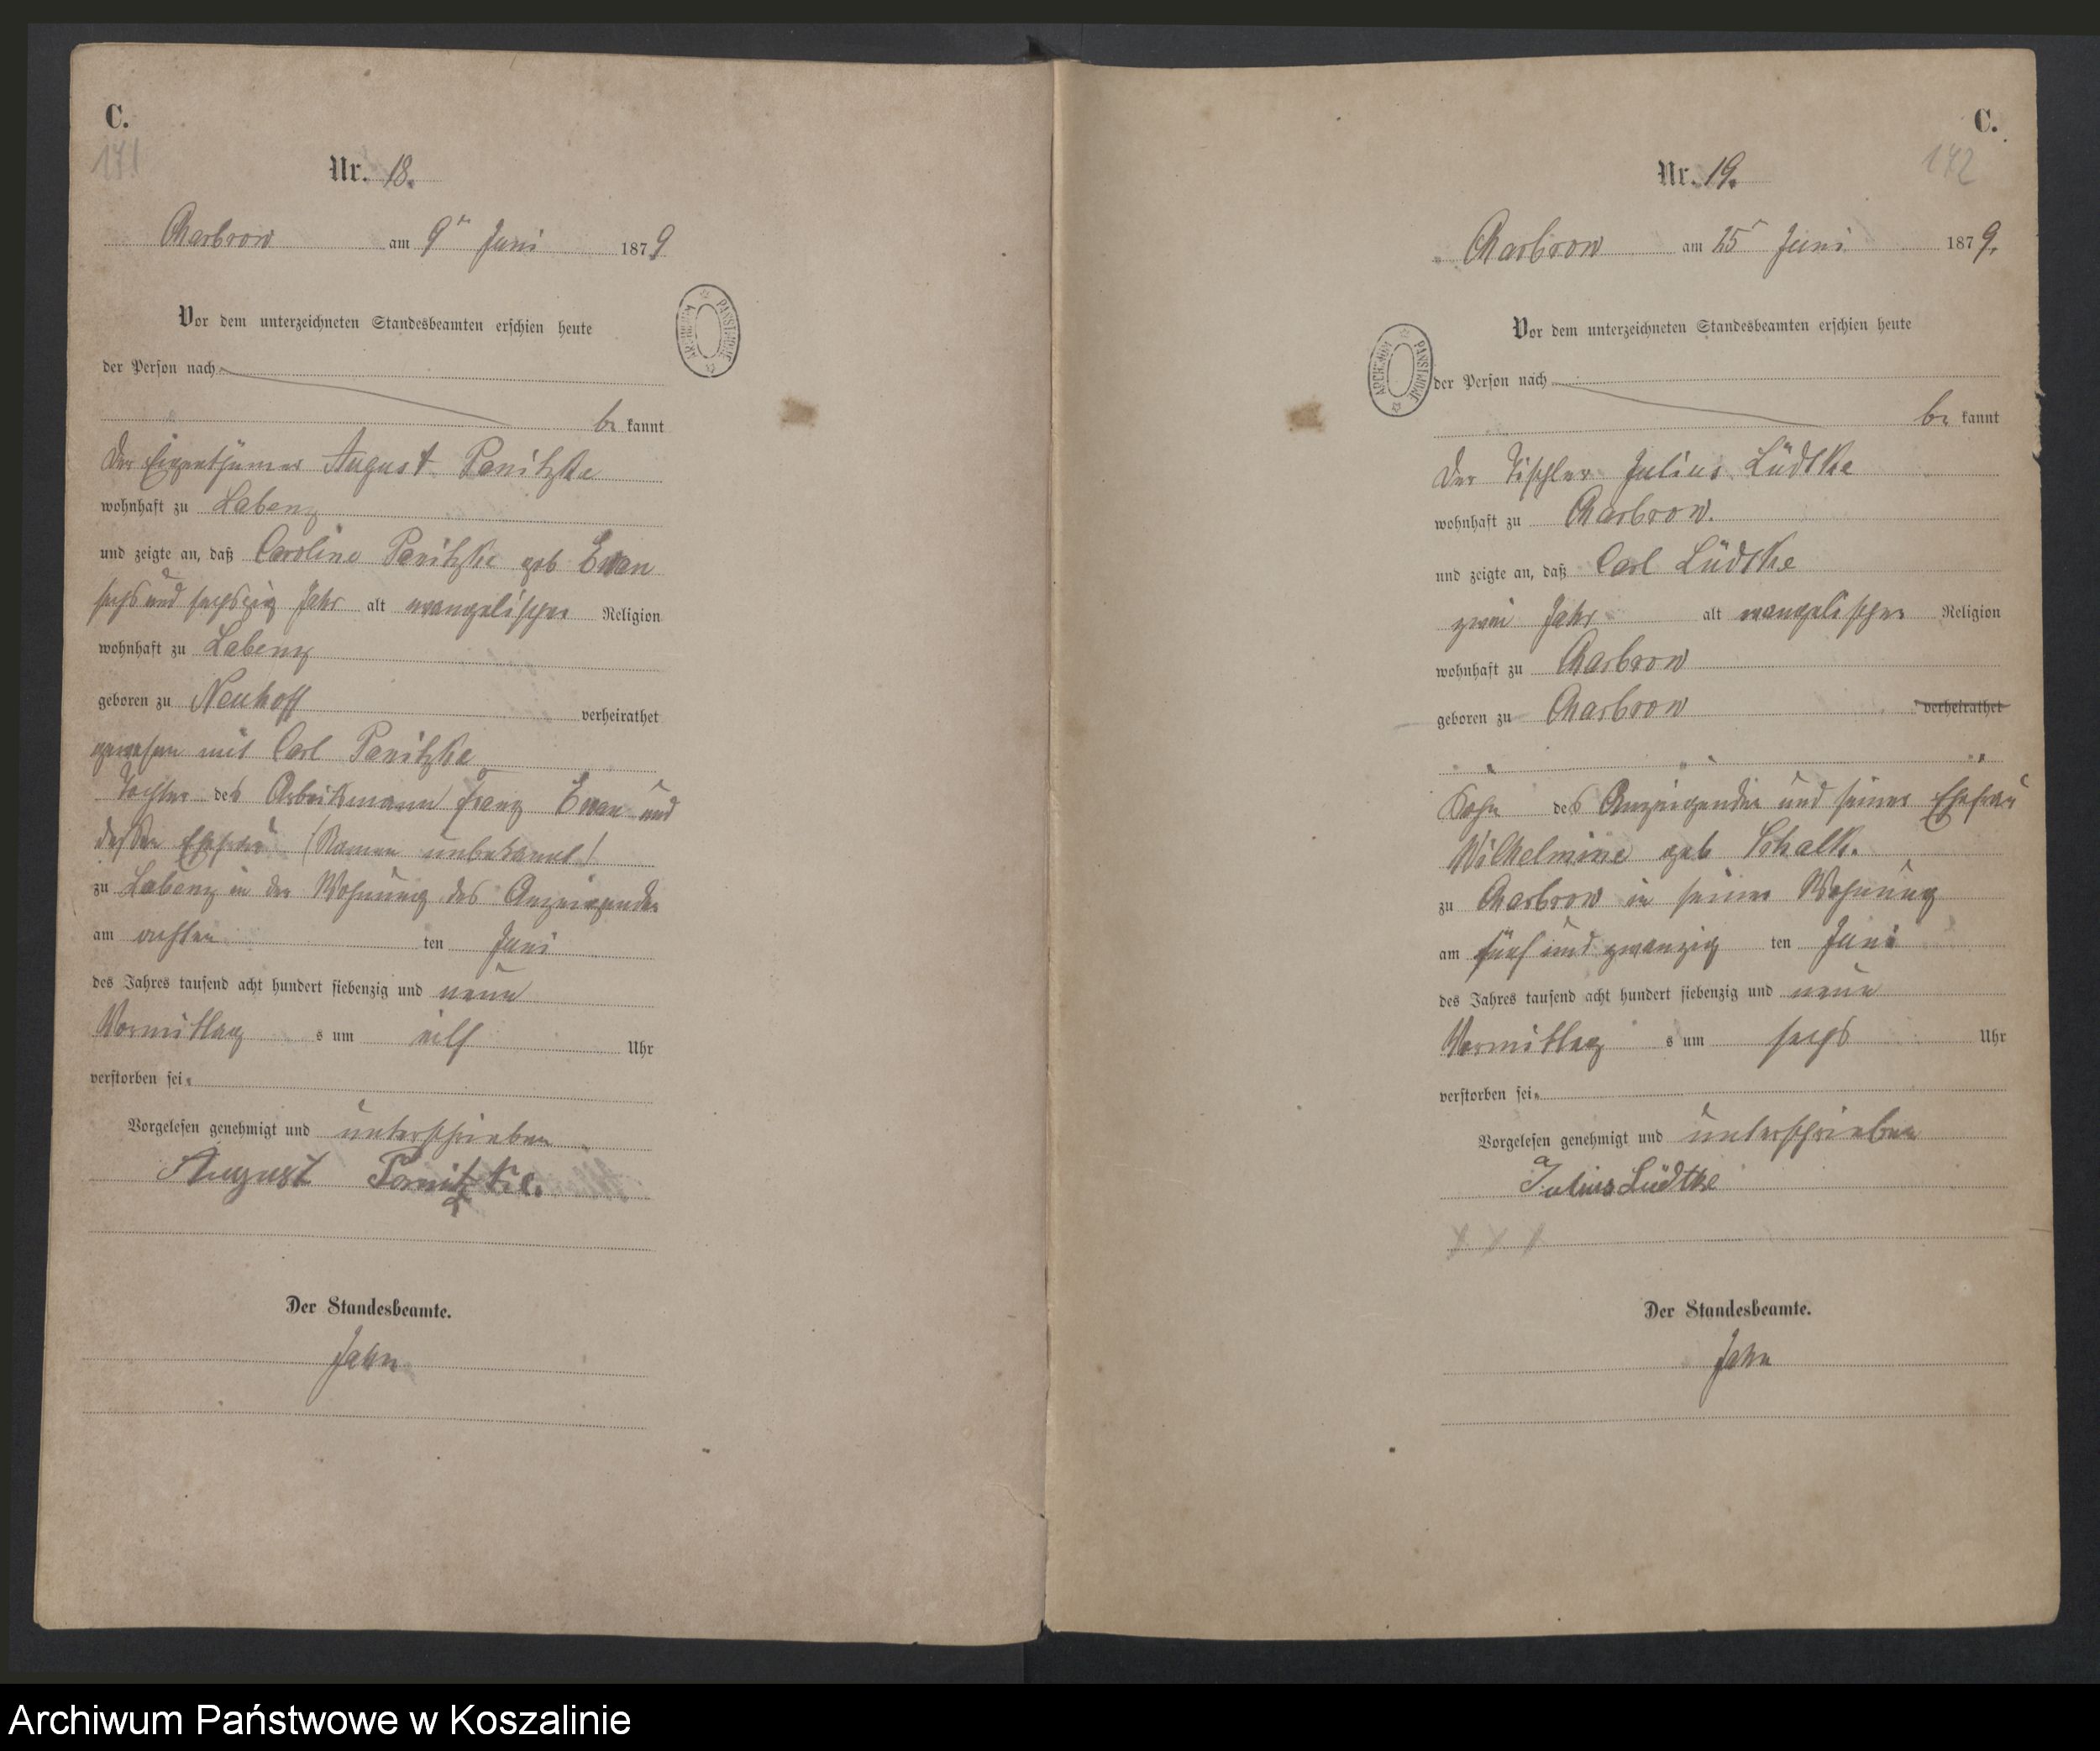 C.
171
Nr. 18.
Charbrow am 9ten Juni 1879
Vor dem unterzeichneten Standesbeamten erschien heute
der Person nach
be kannt
Der Eigenthümer August Panitzke
wohnhaft zu Labenz
und zeigte an, daß Caroline Panitzke geb Ewan
sechs und sechszig Jahr alt evangelischer Religion
wohnhaft zu Labenz
geboren zu Neuhoff verheirathet
gewesen mit Carl Panitzke
Tochter des Arbeitsmann Franz Ewan und
dessen Ehefrau (Namen unbekannt)
zu Labenz in der Wohnung des Anzeigenden
am achten ten Juni
des Jahres tausend acht hundert siebenzig und neun
Vormittag s um eilf Uhr
verstorben sei.
Vorgelesen genehmigt und unterschrieben
August Panitzke.
Der Standesbeamte.
Jahn
ARCHIWUM PAŃSTWOWE
C.
172
Nr. 19.
Charbrow am 25t Juni 1879.
Vor dem unterzeichneten Standesbeamten erschien heute
der Person nach
be kannt
Der Tischler Julius Lüdtke
wohnhaft zu Charbrow.
und zeigte an, daß Carl Lüdtke
zwei Jahr alt evangelischer Religion
wohnhaft zu Charbrow
geboren zu Charbrow verheirathet
" " "
Sohn des Anzeigenden und seiner Ehefrau
Wilhelmine geb Schalk.
zu Charbrow in seiner Wohnung
am fünf und zwanzig ten Juni
des Jahres tausend acht hundert siebenzig und neun
Vormittag s um sechs Uhr
verstorben sei.
Vorgelesen genehmigt und unterschrieben
Julius Lüdtke
Der Standesbeamte.
Jahn
ARCHIWUM PAŃSTWOWE
Archiwum Państwowe w Koszalinie